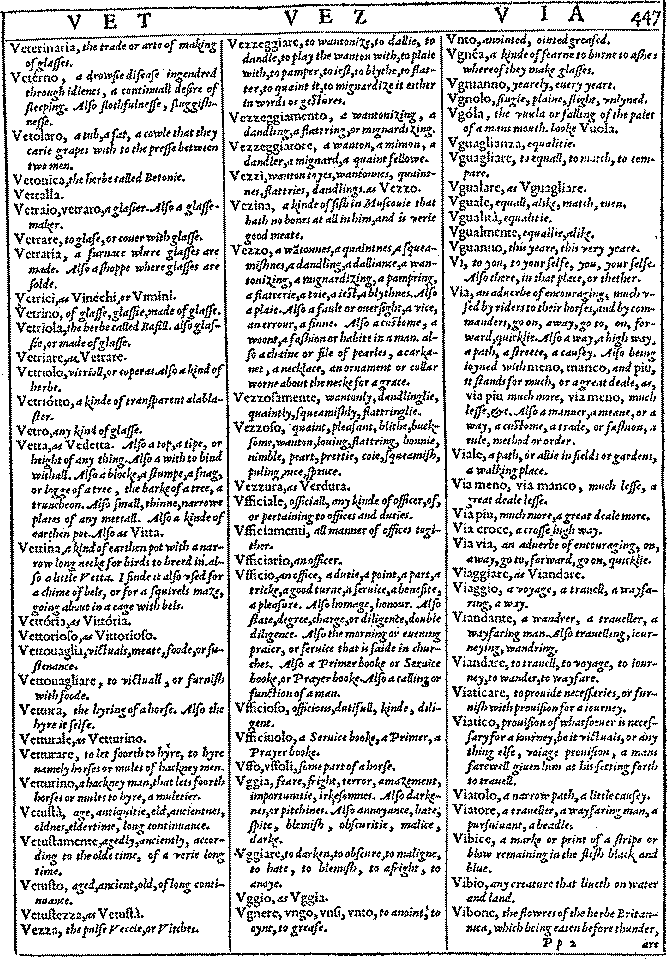 VET VEZ VIA 447
Veterinaria, the trade or arte of making
of glasses.
Vetérno, a drowsie disease ingendred
through idlenes, a continuall desire of
sleeping. Also slothfulnesse, sluggish-
nesse.
Vetolaro, a tub, a fat, a cowle that they
carie grapes with to the presse between
two men.
Vetonica, the herbe called Betonie.
Vetralla.
Vetraio, vetraro, a glasier. Also a glasse-
maker.
Vetrare, to glase, or couer with glasse.
Vetraria, a furnace where glasses are
made. Also a shoppe where glasses are
solde.
Vetrici, as Vinechi, or Vmini.
Vetrino, of glasse, glassie, made of glasse.
Vetriola, the herbe called Basill. also glas-
sie, or made of glasse.
Vetriare, as Vetrare.
Vetriolo, vitrioll, or coperas. Also a kind of
herbe.
Vetriótto, a kinde of transparent alabla-
ster.
Vetro, any kind of glasse.
Vetta, as Vedetta. Also a top, a tipe, or
height of any thing. Also a with to bind
withall. Also a blocke, a stumpe, a snag,
or logge of a tree, the barke of a tree, a
truncheon. Also small, thinne, narrowe
plates of any mettall. Also a kinde of
earthen pot. Also as Vitta.
Vettina, a kind of earthen pot with a nar-
row long necke for birds to breed in. al-
so a little Vetta. I finde it also vsed for
a chime of bels, or for a squirels maze,
going about in a cage with bels.
Vettória, as Vittória.
Vettorioso, as Vittorioso.
Vettouagli, victuals, meate, foode, or su-
stenance.
Vettouagliare, to victuall, or furnish
with foode.
Vettura, the hyring of a horse. Also the
hyre it selfe.
Vetturale, as Vetturino.
Vetturare, to let foorth to hyre, to hyre
namely horses or mules of hackney men.
Vetturino, a hackney man, that lets foorth
horses or mules to hyre, a muletier.
Vetustà, age, antiquitie, old, ancientnes,
oldnes, eldertime, long continuance.
Vetustamente, agedly, anciently, accor-
ding to the olde time, of a verie long
time.
Vetusto, aged, ancient, old, of long conti-
nuance.
Vetustezza, as Vetustà.
Vezza, the pulse Veccie, or Vitches.
Vezzeggiare, to wantonize, to dallie, to
dandle, to play the wanton with, to plaie
with, to pamper, to iest, to blythe, to flat-
ter, to quaint it, to mignardize it either
in words or gestures.
Vezzeggiamento, a wantonizing, a
dandling, a flattring, or mignardizing.
Vezzeggiatore, a wanton, a minion, a
dandler, a mignard, a quaint fellowe.
Vezzi, wanton toyes, wantonnes, quaint-
nes, flattries, dandlings. as Vezzo.
Vezina, a kinde of fish in Muscouie that
hath no bones at all in him, and is verie
good meate.
Vezzo, a wãtonnes, a quaintnes, a squea-
mishnes, a dandling, a dalliance, a wan-
tonizing, a mignardizing, a pampring,
a flatterie, a toie, a iest, a blythnes. Also
a plaie. Also a fault or ouersight, a vice,
an errour, a sinne. Also a custome, a
woont, a fashion or habite in a man. al-
so a chaine or file of pearles, a carka-
net, a necklace, an ornament or collar
worne about the necke for a grace.
Vezzosamente, wantonly, dandlinglie,
quaintly, squeamishly, flattringlie.
Vezzoso, quaint, pleasant, blithe, buck-
some, wanton, louing, flattring, bonnie,
nimble, peart, prettie, coie, squeamish,
puling, nice, spruce.
Vezzura, as Verdura.
Vfficiale, officiall, any kinde of officer, of,
or pertaining to offices and duties.
Vfficiamenti, all manner of offices togi-
ther.
Vfficiario, an officer.
Vfficio, an office, a dutie, a point, a part, a
tricke, a good turne, a seruice, a benefite,
a pleasure. Also homage, honour. Also
state, degree, charge, or diligence, double
diligence. Also the morning or euening
praier, or seruice that is saide in chur-
ches. Also a Primer booke or Seruice
booke, or Prayer booke. Also a calling or
function of a man.
Vfficioso, officious, dutifull, kinde, dili-
gent.
Vfficiuolo, a Seruice booke, a Primer, a
Prayer booke.
Vffo, vffoli, some part of a horse.
Vggia, feare, fright, terror, amazement,
importunitie, irkesomnes. Also darke-
nes, or pitchines. Also annoyance, hate,
spite, blemish, obscuritie, malice,
darke.
Vggiare, to darken, to obscure, to maligne,
to hate, to blemish, to afright, to
anoye.
Vggio, as Vggia.
Vgnere, vngo, vnsi, vnto, to anoint, to
oynt, to grease.
Vnto, anointed, ointed, greased.
Vgnéa, a kinde of fearne to burne to ashes
whereof they make glasses.
Vgnianno, yearely, euery yeare.
Vgnolo, single, plaine, slight, vnlyned.
Vgóla, the vuola or falling of the palet
of a mans mouth. looke Vuola.
Vguaglianza, equalitie.
Vguagliare, to equall, to match, to com-
pare.
Vgualare, as Vguagliare.
Vguale, equall, alike, match, euen.
Vgualità, equalitie.
Vgualmente, equallie, alike.
Vguanno, this yeare, this very yeare.
Vi, to you, to your selfe, you, your selfe.
Also there, in that place, or thether.
Via, an aduerbe of encouraging, much v-
sed by riders to their horses, and by com-
manders, go on, away, go to, on, for-
ward, quicklie. Also a way, a high way,
a path, a streete, a causey. Also being
ioyned with meno, manco, and piu,
it stands for much, or a great deale, as,
via piu much more, via meno, much
lesse, &c. Also a manner, a meane, or a
way, a custome, a trade, or fashion, a
rule, method or order.
Viale, a path, or allie in fields or gardens,
a walking place.
Via meno, via manco, much lesse, a
great deale lesse.
Via piu, much more, a great deale more.
Via croce, a crosse high way.
Via via, an aduerbe of encouraging, on,
away, go to, forward, go on, quicklie.
Viaggiare, as Viandare.
Viaggio, a voyage, a trauell, a wayfa-
ring, a way.
Viandante, a wandrer, a traueller, a
wayfaring man. Also trauelling, iour-
neying, wandring.
Viandare, to trauell, to voyage, to iour-
ney, to wander, to wayfare.
Viaticare, to prouide necesseries, or fur-
nish with prouision for a journey.
Viatico, prouision of whatsoeuer is neces-
sary for a iourney, be it victuals, or any
thing else, voiage prouision, a mans
farewell giuen him at his setting forth
to trauell.
Viatolo, a narrow path, a little causey.
Viatore, a traueller, a wayfaring man, a
pursuiuant, a beadle.
Vibice, a marke or print of a stripe or
blow remaining in the flesh black and
blue.
Vibio, any creature that liueth on water
and land.
Vibone, the flowres of the herbe Britan-
nica, which being eaten before thunder,
Pp 2 are